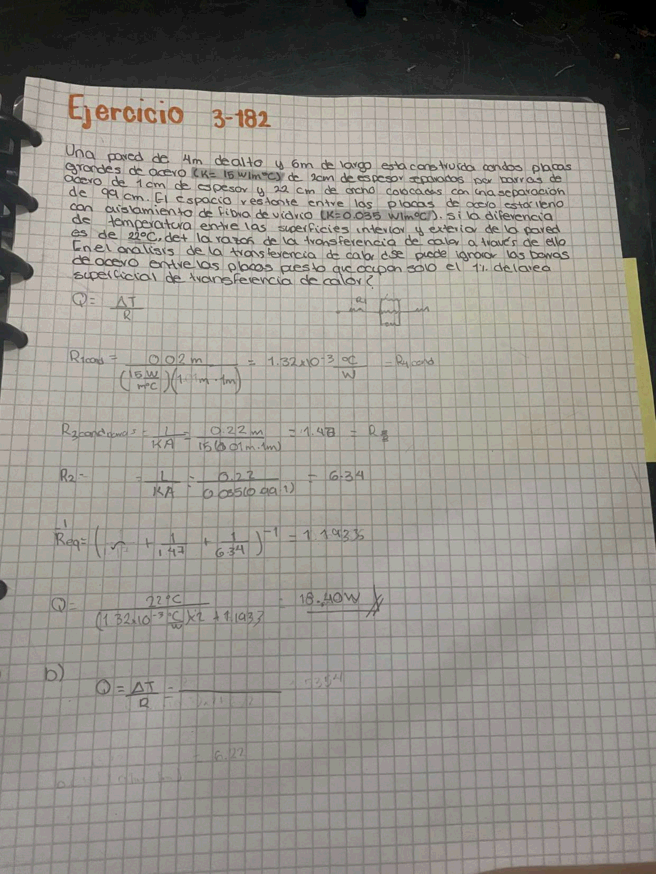 Ejercicio 3-182
Una pared de 4m de alto y 6m de largo esta construida con dos placas
grandes de acero (K= 15 W/m°C) de 2cm de espesor separados por barras de
acero de 1cm de espesor y 22 cm de ancho colocadas con una separación
de 99 cm. El espacio restante entre las placas de acero esta lleno
con aislamiento de fibra de vidrio (K=0.035 W/m°C). si la diferencia
de temperatura entre las superficies interior y exterior de la pared
es de 22°C, det la razon de la transferencia de calor a través de ello
En el analisis de la transferencia de calor d se puede ignorar las barras
de acero entre las placas puesto que ocupan solo el 1% del area
superficial de transferencia de calor?
Q = ΔT / R
R1cond = 0.02m / (15 W/m°C)(1. m · 1m) = 1.32x10^-3 °C/W = R4cond
= L/KA = 0.22m / 15(0.01m·1m) = 1.47 = R
R2 = = L/KA = 0.22 / 0.035(0.99·1) = 6.34
Req = ( + 1/1.47 + 1/6.34 )^-1 = 1.193
Q = 22°C / (1.32x10^-3 °C/W)x2 + 1.193) = 18.40W
b)
Q = ΔT / R =